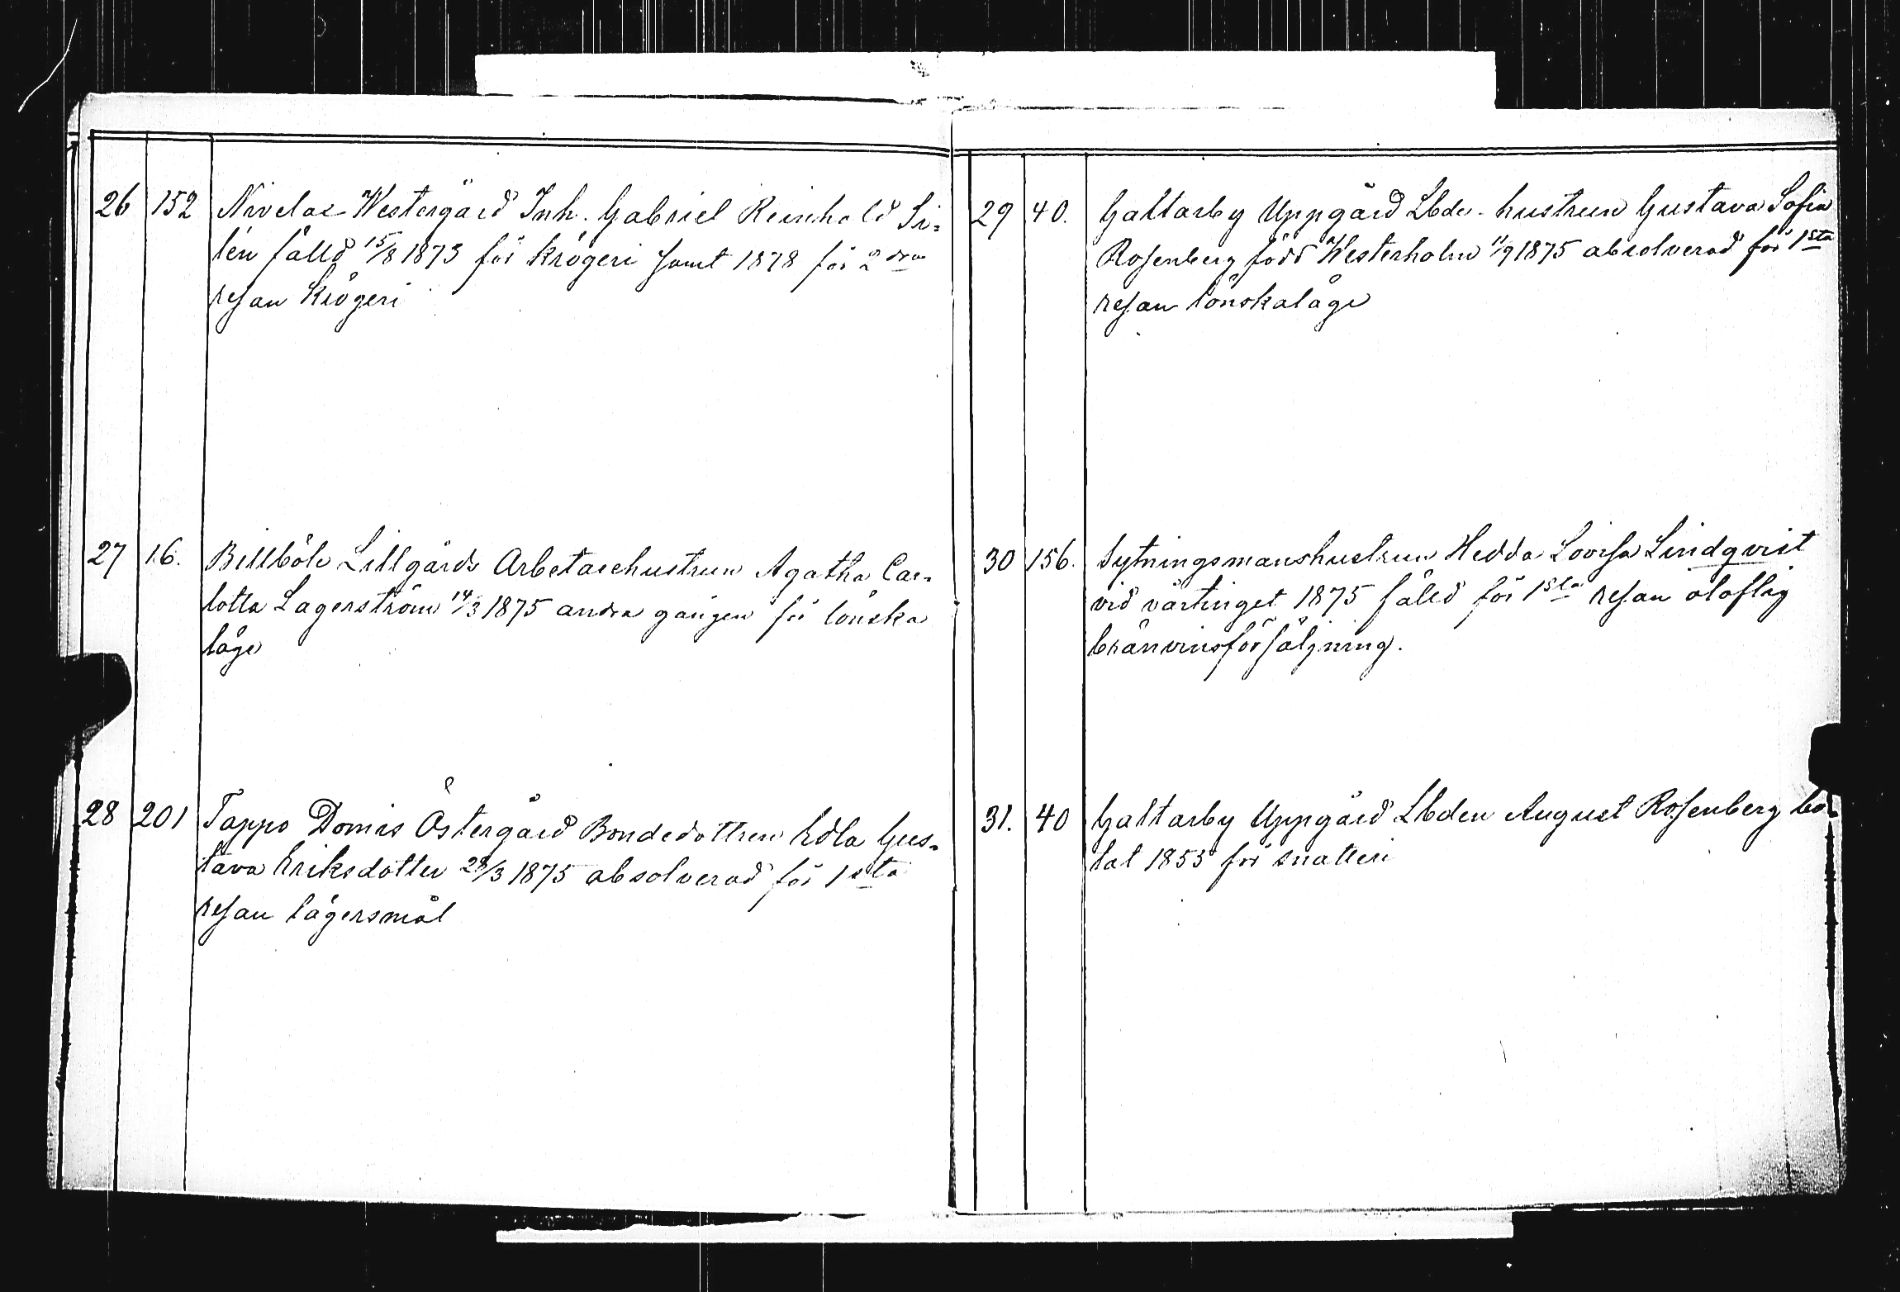 26 152 Nivelax Westergård Inh. Gabriel Reinhold Si-
lén fälld 15/8 1873 för krögeri samt 1878 för 2dra
resan krögeri
27 16. Billböle Lillgårds Arbetarehustrun Agatha Car-
lotta Lagerström 14/3 1875 andra gången för lönska
läge
28 201 Tappo Domars Östergård Bondedottren Edla Gus-
tava Eriksdotter 29/3 1875 absolverad för 1sta
resan lägersmål
29 40. Galtarby Uppgård Lbde. hustrun Gustava Sofia
Rosenberg född Westerholm 11/9 1875 absolverad för 1sta
resan lönskaläge
30 156. Sytningsmanshustrun Hedda Lovisa Lindqvist
vid vårtinget 1875 fälld för 1sta resan olaflig
bränvinsförsäljning.
31. 40 Galtarby Uppgård Lbden August Rosenberg bö-
tat 1853 för snatteri